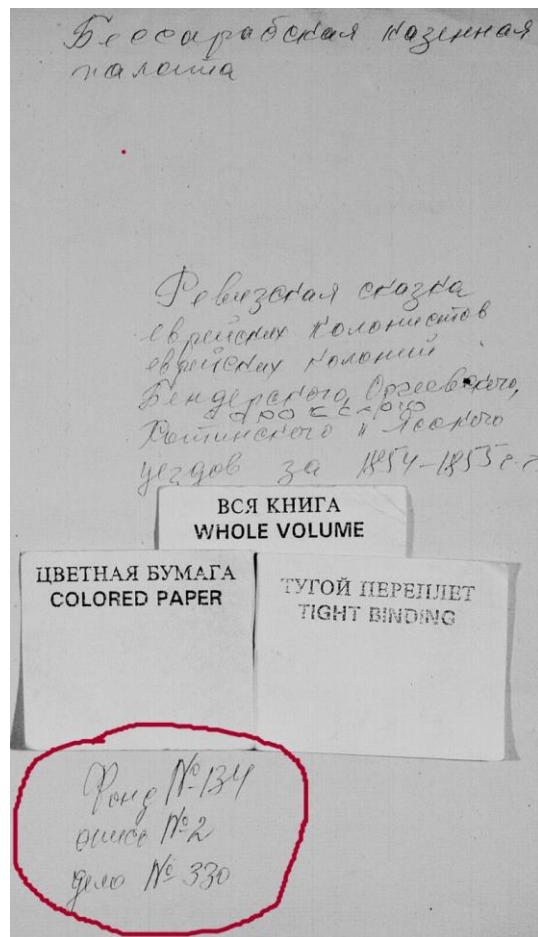 Бессарабская казенная
палата
Ревизская сказка
еврейских колонистов
еврейских колоний
Бендерского, Оргеевского,
Сорокского
Хотинского и Ясского
уездов за 1854-1855 г.г.
ВСЯ КНИГА
WHOLE VOLUME
ЦВЕТНАЯ БУМАГА
COLORED PAPER
ТУГОЙ ПЕРЕПЛЕТ
TIGHT BINDING
Фонд № 134
опись № 2
дело № 330